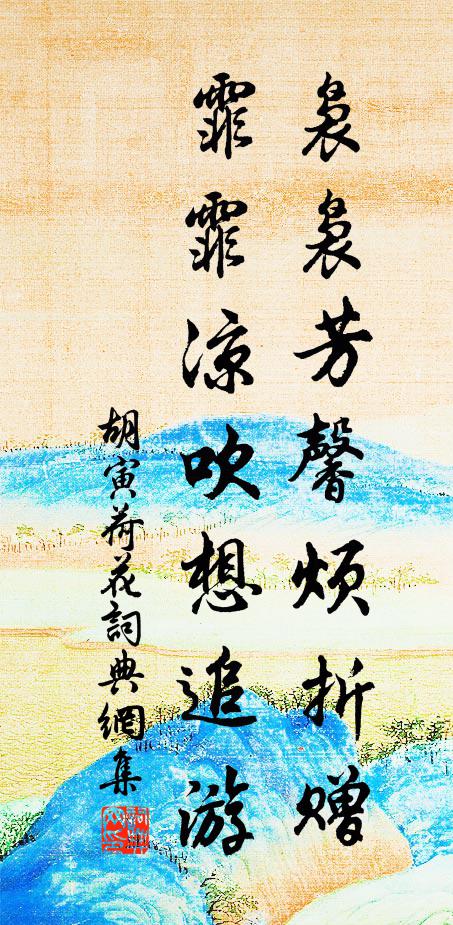 袅袅芳馨烦折赠
霏霏凉吹想追游
胡寅荷花詞典網集